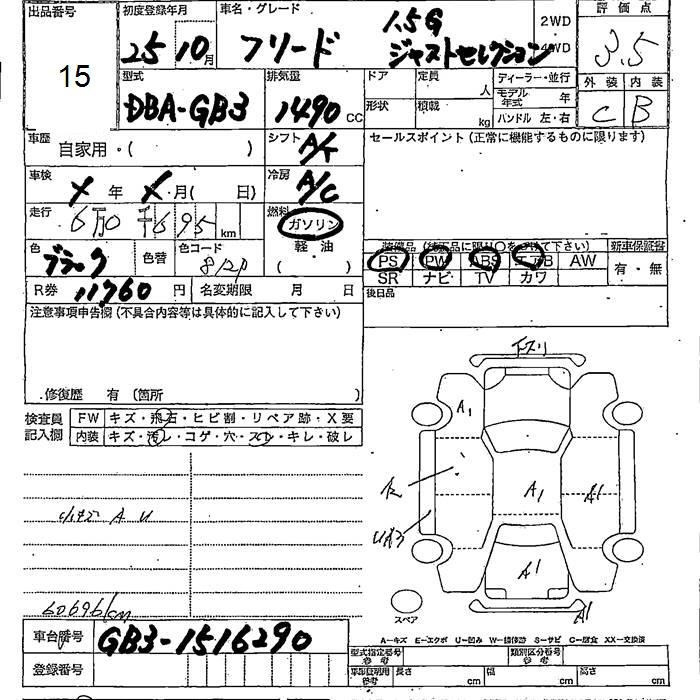 出品番号 初度登録年月 車名・グレード 1.5G 2WD 評価点
15 25 10月 フリード ジャストセレクション 4WD 3.5
型式 排気量 ドア 定員 人 ディーラー・並行 外装 内装
DBA-GB3 1490 CC 形状 積載 kg モデル年式 年 C B
ハンドル 左・右
車歴 自家用・( ) シフト A/T セールスポイント(正常に機能するものに限ります)
車検 年 月( 日) 冷房 A/C
走行 6万0千695 km 燃料 ガソリン
軽・油
( )
色 ブラック 色替 色コード 装備品(純正品に限り○をつけて下さい) 新車保証書
PS PW ABS エアB AW 有・無
SR ナビ TV カワ
R券 11760 円 名変期限 月 日 後日品
注意事項申告欄(不具合内容等は具体的に記入して下さい)
修復歴 有 〔箇所 〕
検査員記入欄 FW キズ・飛石・ヒビ割・リペア跡・X要
内装 キズ・汚レ・コゲ・穴・スレ・キレ・破レ
A1
A1 A1
A1
A1
A U
60696km
スペア
A—キズ E—エクボ U—凹み W—補修跡 S—サビ C—腐食 XX—交換済
車台番号 GB3-1516290 型式指定番号 参考 類別区分番号 参考
登録番号 車庫証明用 参考 長さ cm 幅 cm 高さ cm